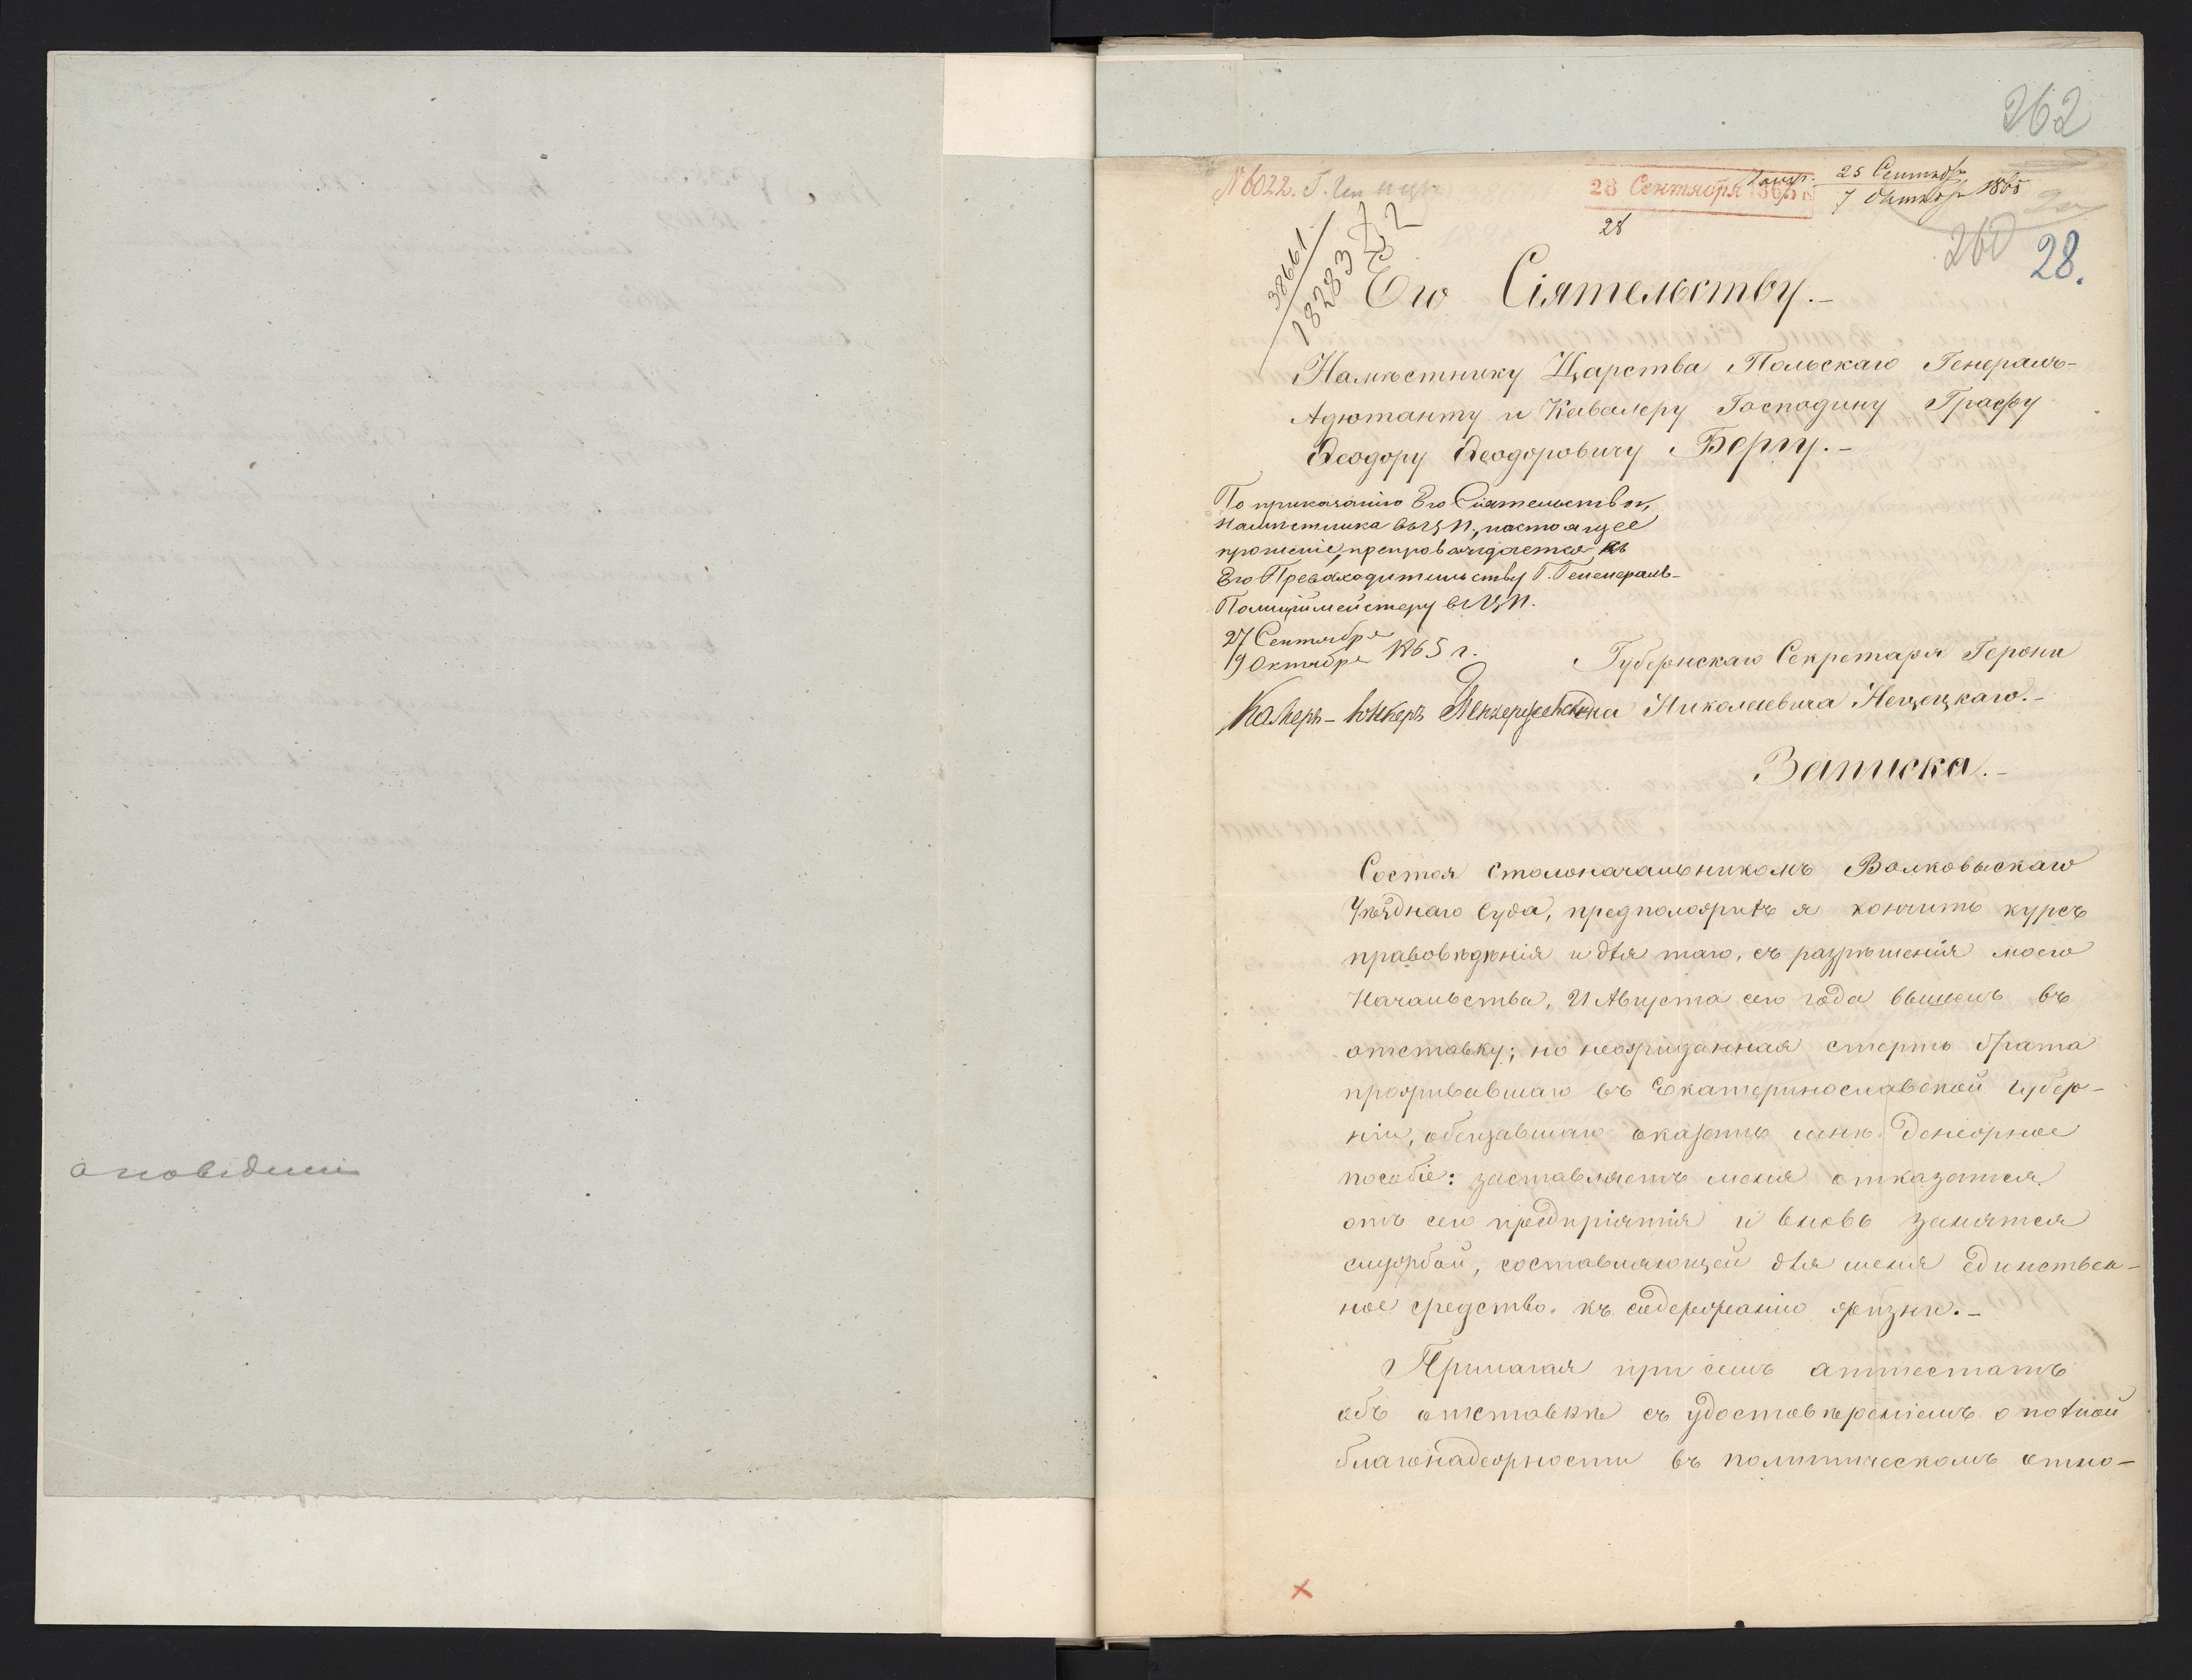 о повѣденіи
262
№ 6022.
28 Сентября 1865
25 Сентябр
7 Октябр 1865
28
260
28.
38661
18283
Его Сіятельству.-
Намѣстнику Царства Польскаго Генералъ-
Адютанту и Кавалеру Господину Графу
Ѳеодору Ѳеодоровичу Бергу.-
По приказанію Его Сіятельства,
Намѣстника въ Ц. П., настоящее
прошеніе, препровождается къ
Его Превосходительству Г. Генералъ-
Полицiймейстеру въ Ц. П.
27 Сентября
9 Октября 1865 г.
Камеръ-Юнкеръ
Губернскаго Секретаря Герони
Николаевича Нецецкаго.-
Записка.-
Состоя столоначальникомъ Волковыскаго
Уѣзднаго Суда, предположилъ я кончить курсъ
правовѣдѣнія и для того, съ разрѣшенія моего
Начальства, 21 Августа сего года вышелъ въ
отставку; но неожиданная смерть брата
проживавшаго въ Екатеринославской Губер-
ніи, обещавшаго оказать мнѣ денежное
пособіе: заставляетъ меня отказатся
отъ сего предпріятія и вновь занятся
службой, составляющей для меня единствен-
ное средство къ содержанію жизни.-
Прилагая при семъ аттестатъ
объ отставкѣ съ удостовѣреніемъ о полной
благонадежности въ политическомъ отно-